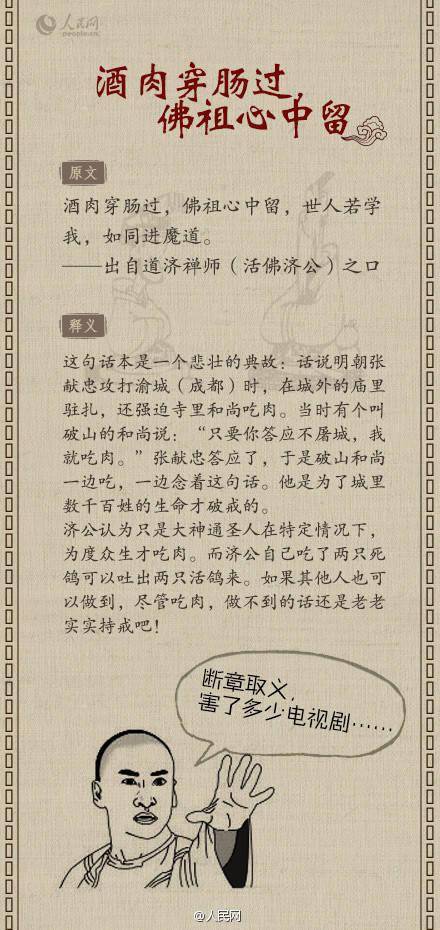 人民网
people.cn
酒肉穿肠过，
佛祖心中留
原文
酒肉穿肠过，佛祖心中留，世人若学
我，如同进魔道。
——出自道济禅师（活佛济公）之口
释义
这句话本是一个悲壮的典故：话说明朝张
献忠攻打渝城（成都）时，在城外的庙里
驻扎，还强迫寺里和尚吃肉。当时有个叫
破山的和尚说：“只要你答应不屠城，我
就吃肉。”张献忠答应了，于是破山和尚
一边吃，一边念着这句话。他是为了城里
数千百姓的生命才破戒的。
济公认为只是大神通圣人在特定情况下，
为度众生才吃肉。而济公自己吃了两只死
鸽可以吐出两只活鸽来。如果其他人也可
以做到，尽管吃肉，做不到的话还是老老
实实持戒吧！
断章取义，
害了多少电视剧……
@人民网